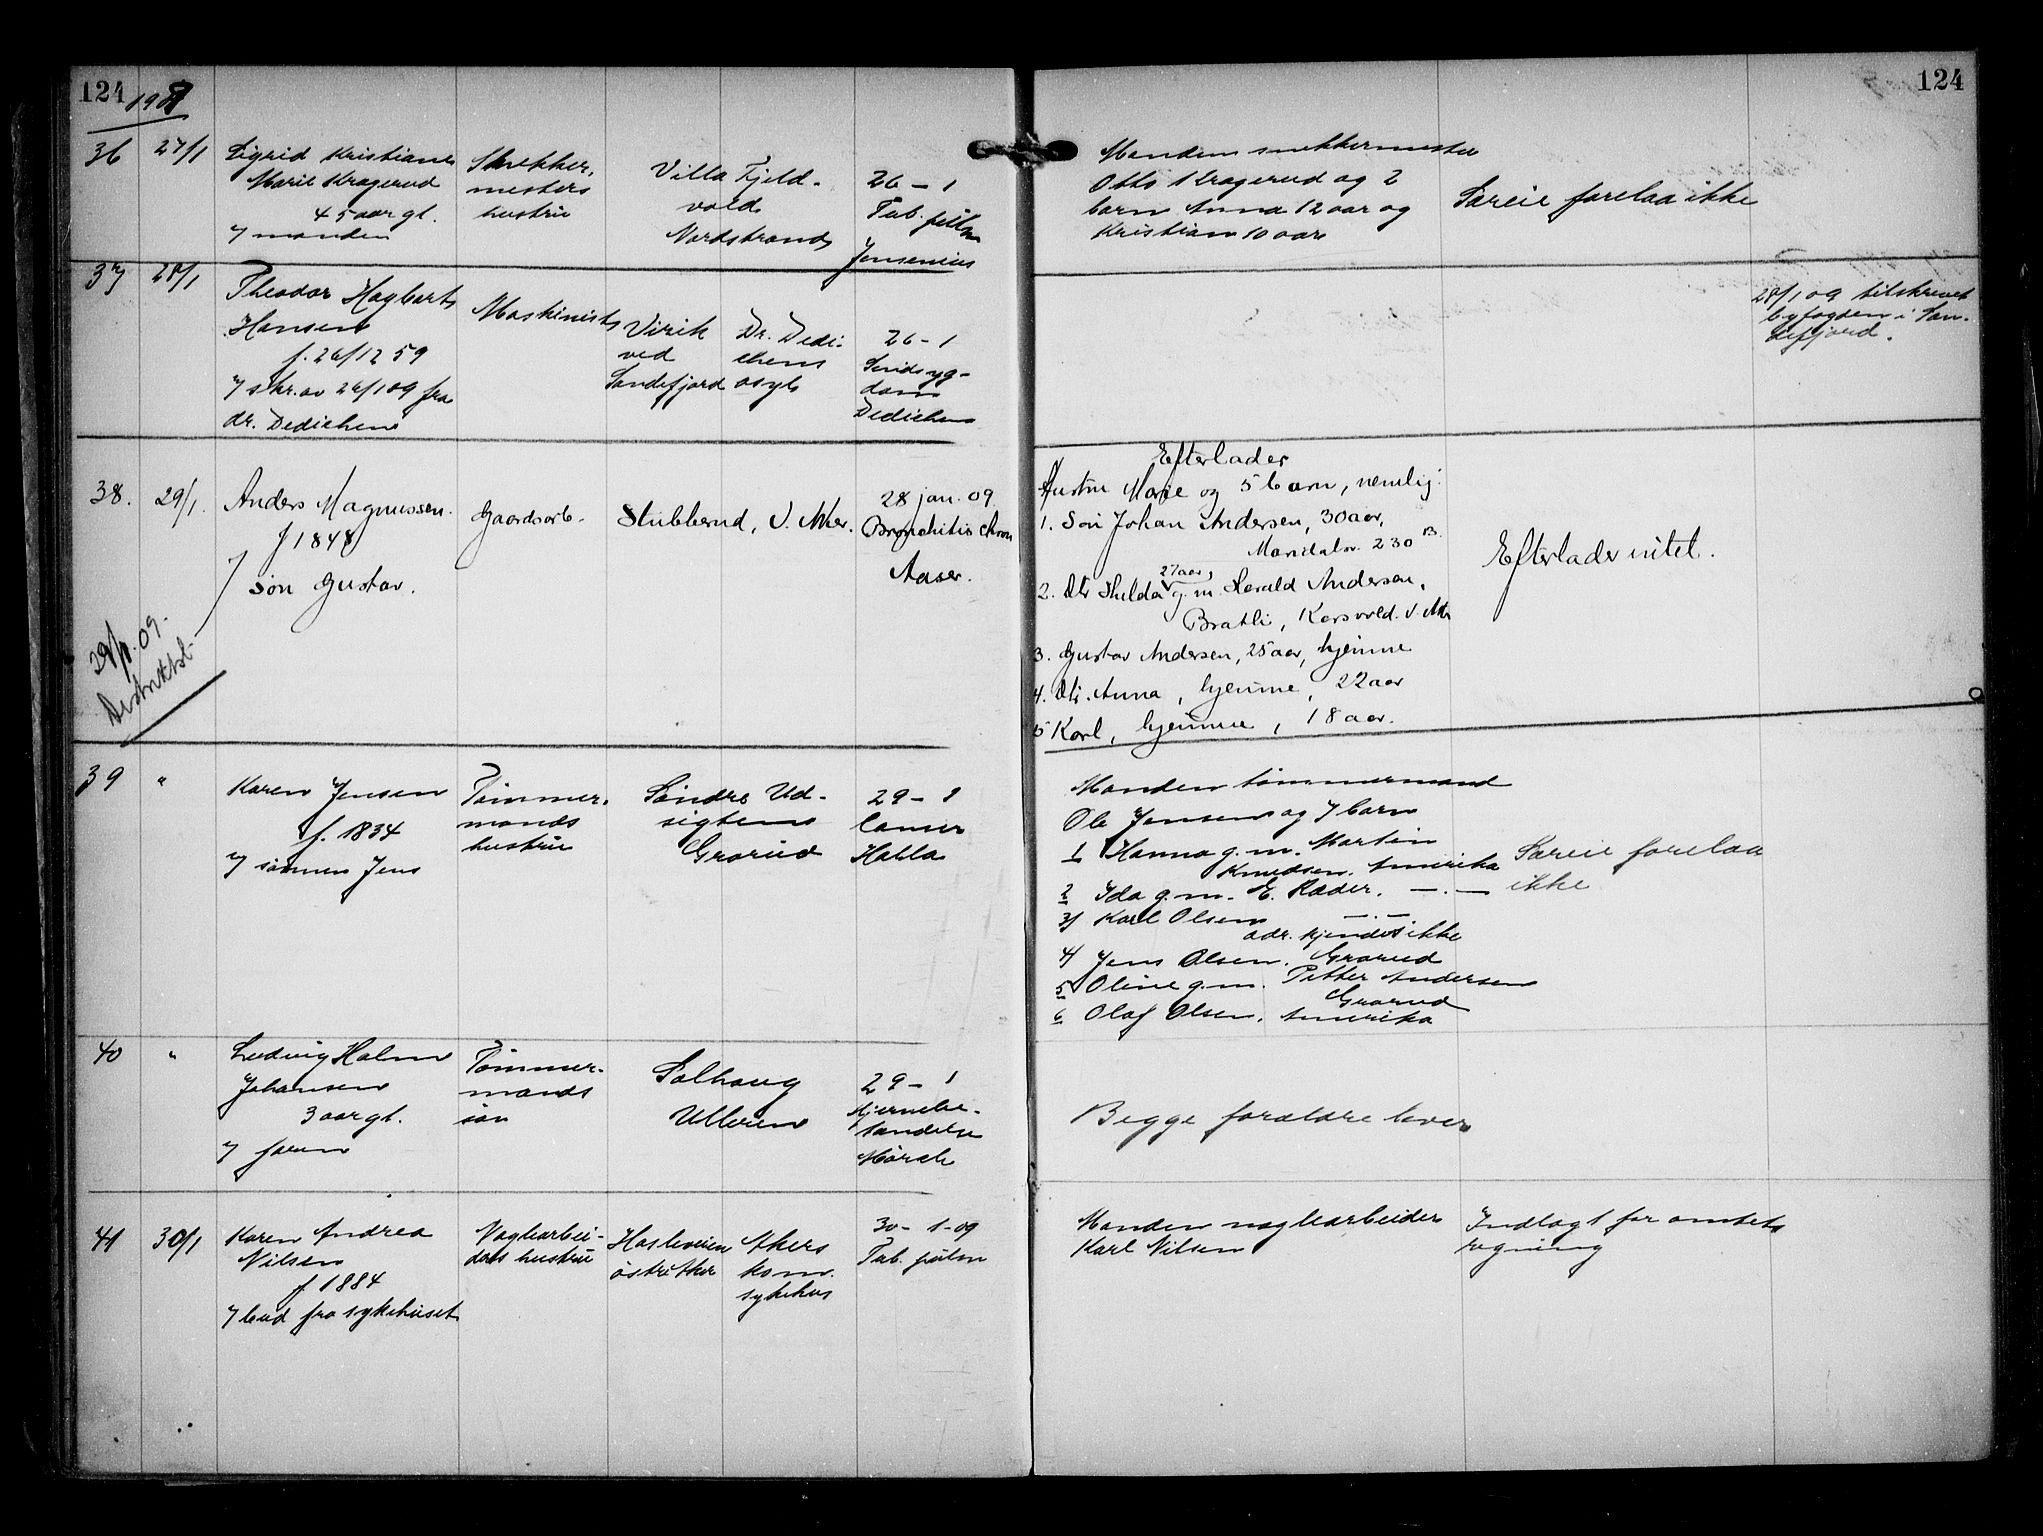 124
1909
124
36 27/1 Sigrid Kristiane
Marie Kragerud
45 aar gl.
manden
Snekker-
mesters
hustru
Villa Fjeld-
vold
Nordstrand
26 - 1
Tub. pulm
Jensenius
Manden snekkermester
Otto Kragerud og 2
barn Anna 12 aar og
Kristian 10 aar
Særeie forelaa ikke
37 28/1
Theodor Hagbart
Hansen
f. 26/12 59
skr. av 26/1 09 fra
dr. Dedichen
Maskinist
Virik
ved
Sandefjord
Dr. Dedi-
chens
asyl
26 - 1
Sindsyg-
dom
Dedichen
28/1 09 tilskrevet
byfogden i San-
defjord.
38. 29/1.
Anders Magnussen.
f 1848
søn Gustav.
29/1. 09.
Gaardsarb.
Stubberud, V. Aker.
28 jan. 09
Bronchitis chron
Aaser.
Efterlader
Hustru Marie og 5 barn, nemlig:
1. Søn Johan Andersen, 30 aar,
Maridalsv. 230 B.
27 aar,
2. Dtr Hulda g. m. Harald Andersen,
Bratli, Korsvold. V. Aker
3. Gustav Andersen, 25 aar, hjemme
4. Dtr. Anna, hjemme, 22 aar
5 Karl, hjemme, 18 aar.
Efterlader intet.
39 "
Karen Jensen
f. 1834
sønnen Jens
Tømmer-
mands
hustru
Søndre Ud-
sigten
Grorud
29 - 1
Cancer
Kobbe
Manden tømmermand
Ole Jensen og 7 barn
1 Hanna g. m. Martin
Knudsen. Amerika
2 Ida g. m. E. Ræder. —.—
3) Karl Olsen —.—
adr. kjendes ikke
4) Jens Olsen. Grorud
5) Oline g. m. Petter Andersen
Grorud
6 Olaf Olsen, Amerika
Særeie forelaa
ikke
40 "
Ludvig Holm
Johansen
3 aar gl.
faren
Tømmer-
mands
søn
Solhaug
Ullern
29 - 1
Hjernebe-
tændelse
Mørch
Begge forældre lever
41 30/1
Karen Andrea
Nilsen
f 1884
bud fra sykehuset
Vognarbei-
ders hustru
Hasleveien
østre Aker
Akers
kom.
sykehus
30 - 1 - 09
Tub. pulm
Manden vognarbeider
Karl Nilsen
Indlagt for amtets
regning